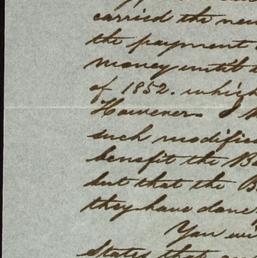 carried the new
the payment
money until
of 1852. which
However I
such modific
benefit the B
but that the B
they have done
You wi
States that